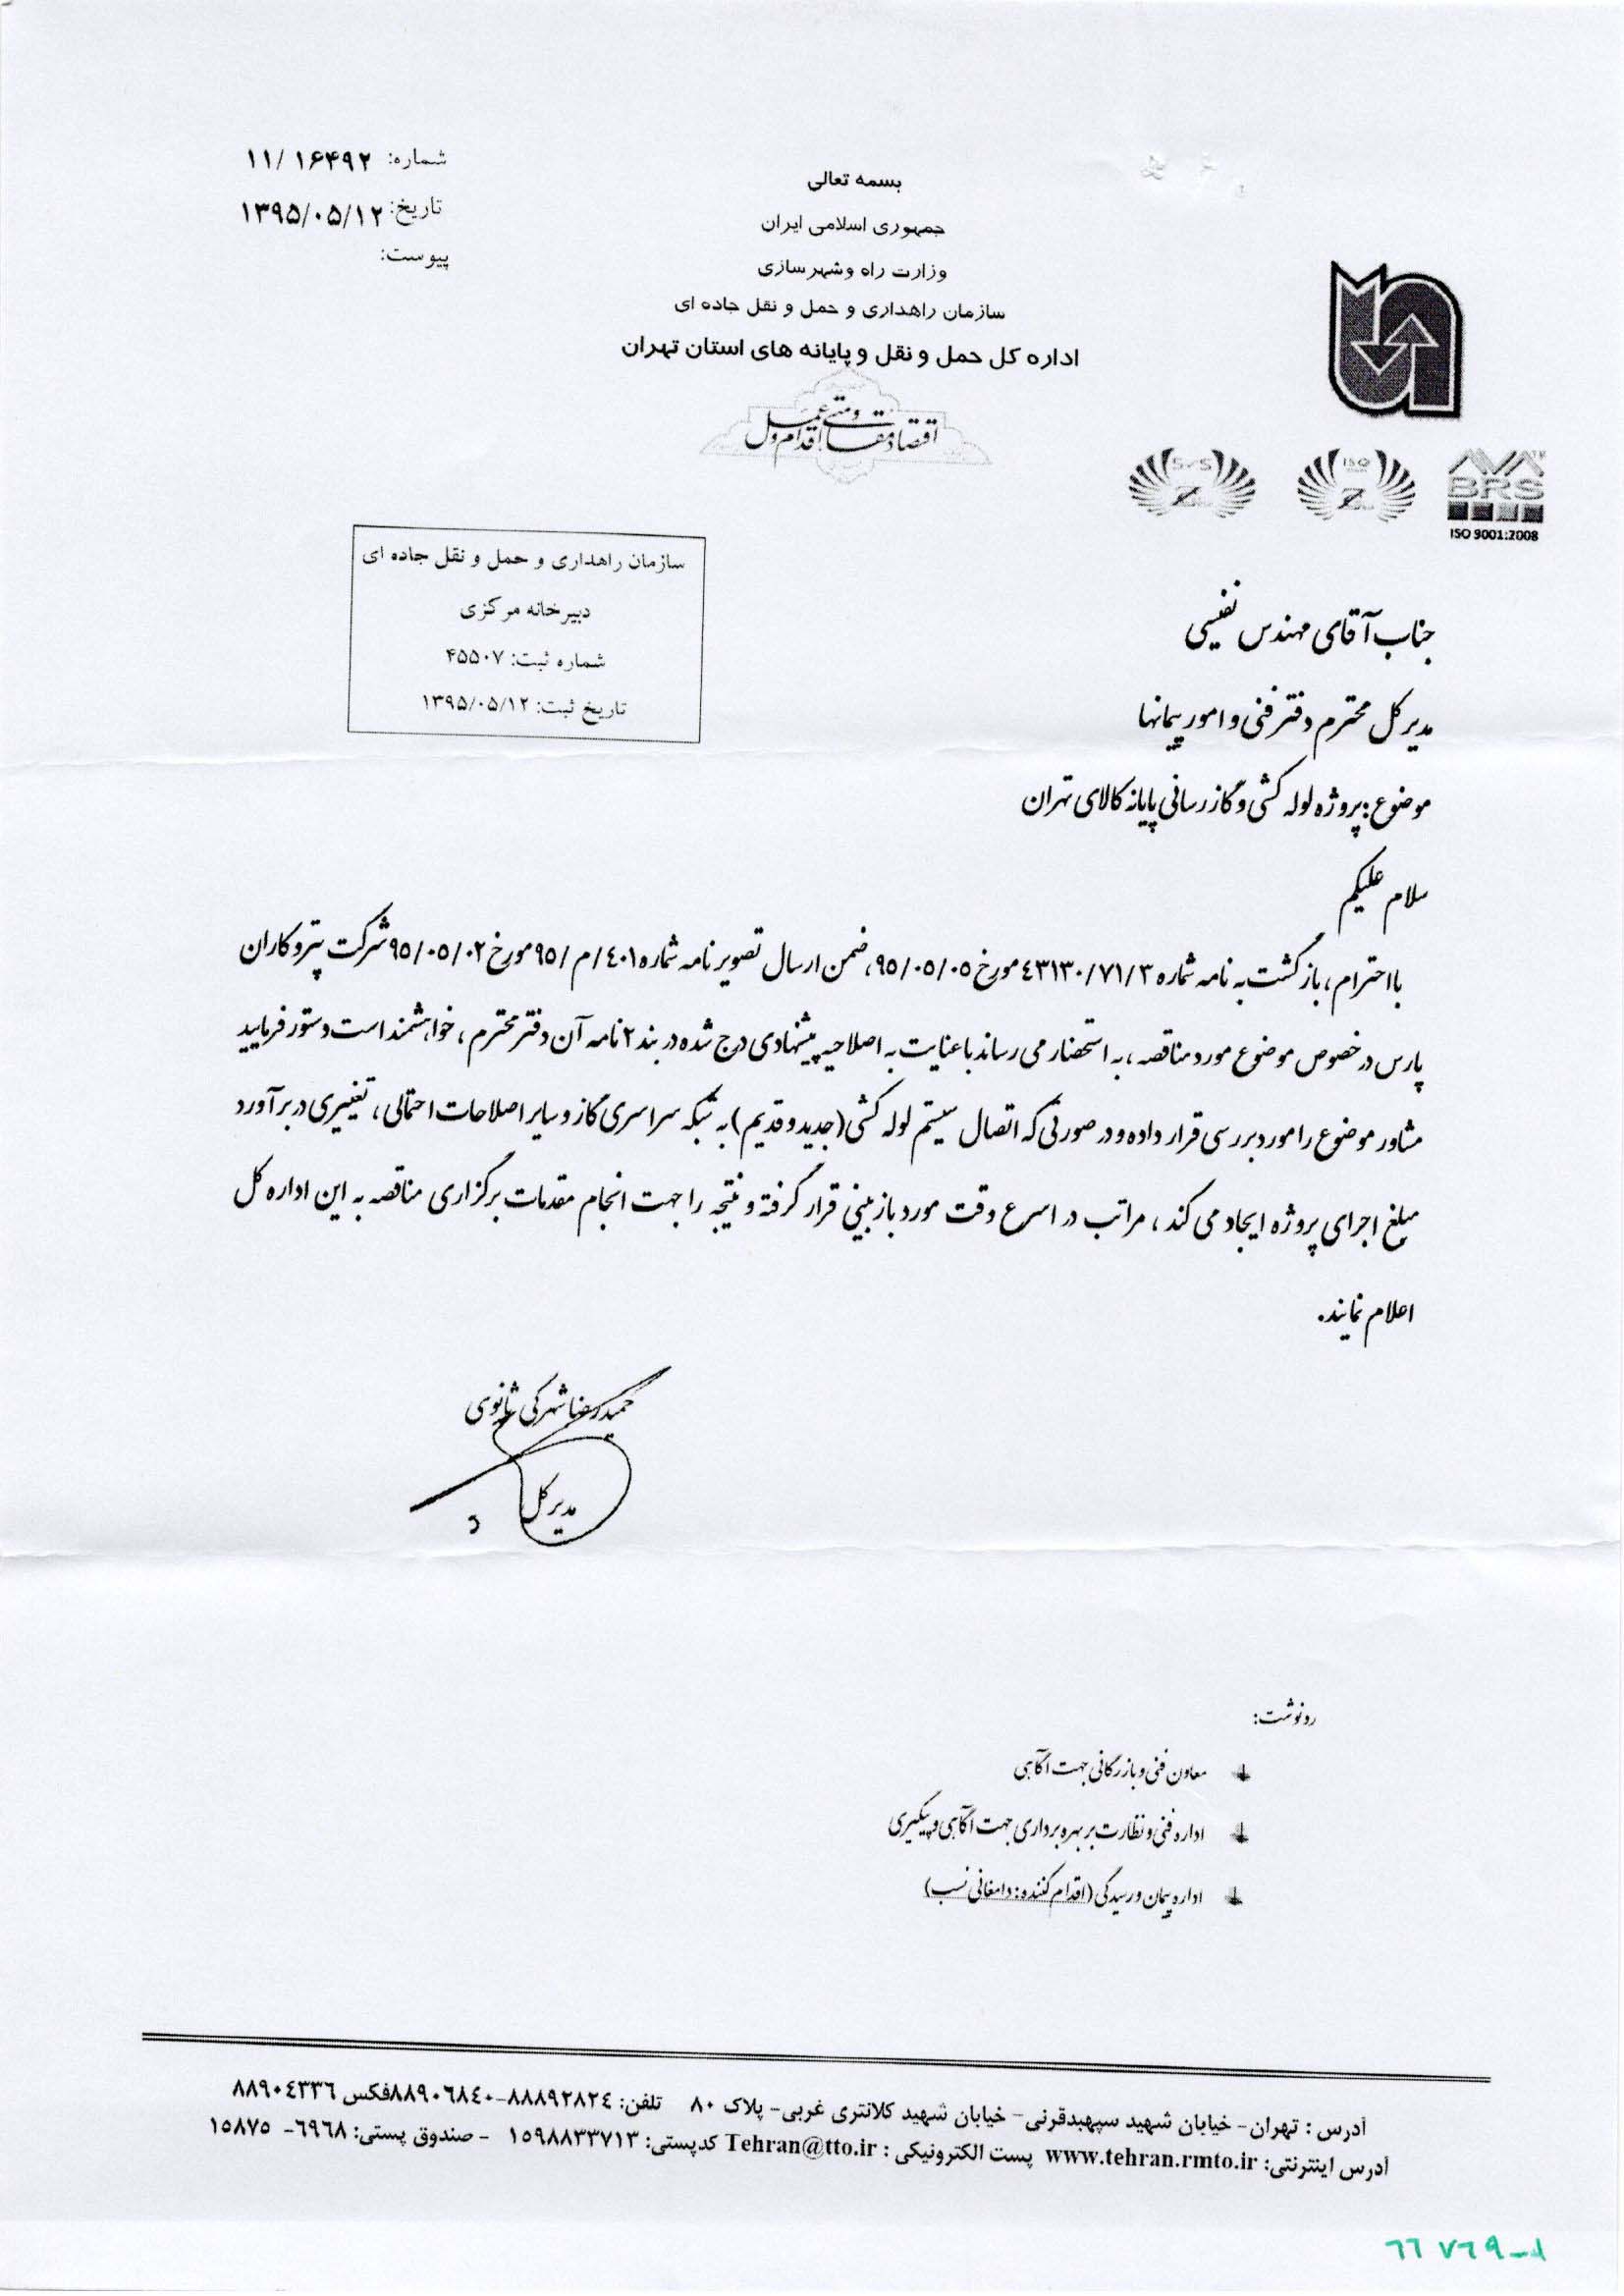 بسمه تعالی
جمهوری اسلامی ایران
وزارت راه و شهرسازی
سازمان راهداری و حمل و نقل جاده ای
اداره کل حمل و نقل و پایانه های استان تهران
اقتصاد مقاومتی اقدام و عمل
شماره: ۱۱/۱۶۴۹۲
تاریخ: ۱۳۹۵/۰۵/۱۲
پیوست:
BRS
ISO 9001:2008
ISO
سازمان راهداری و حمل و نقل جاده ای
دبیرخانه مرکزی
شماره ثبت: ۴۵۵۰۷
تاریخ ثبت: ۱۳۹۵/۰۵/۱۲
جناب آقای مهندس نفیسی
مدیر کل محترم دفتر فنی و امور پیمانها
موضوع: پروژه لوله کشی و گازرسانی پایانه کالای تهران
سلام علیکم
با احترام، بازگشت به نامه شماره ٤٣١٣٠/٧١/٣ مورخ ٩٥/٠٥/٠٥، ضمن ارسال تصویر نامه شماره ٤٠١/م/٩٥ مورخ ٩٥/٠٥/٠٢ شرکت پترو کاران
پارس در خصوص موضوع مورد مناقصه، به استحضار می رساند با عنایت به اصلاحیه پیشنهادی درج شده در بند ٢ نامه آن دفتر محترم، خواهشمند است دستور فرمایید
مشاور موضوع را مورد بررسی قرار داده و در صورتی که اتصال سیستم لوله کشی (جدید و قدیم) به شبکه سراسری گاز و سایر اصلاحات احتمالی، تغییری در برآورد
مبلغ اجرای پروژه ایجاد می کند، مراتب در اسرع وقت مورد بازبینی قرار گرفته و نتیجه را جهت انجام مقدمات برگزاری مناقصه به این اداره کل
اعلام نمایند.
حمیدرضا شهرکی ثانوی
مدیر کل
رونوشت:
معاون فنی و بازرگانی جهت آگاهی
اداره فنی و نظارت بر بهره برداری جهت آگاهی و پیگیری
اداره پیمان و رسیدگی (اقدام کننده: دامغانی نسب)
آدرس : تهران - خیابان شهید سپهبدقرنی - خیابان شهید کلانتری غربی - پلاک ٨٠ تلفن: ٨٨٨٩٢٨٢٤-٨٨٩٠٦٨٤٠ فکس ٨٨٩٠٤٣٣٦
آدرس اینترنتی: www.tehran.rmto.ir پست الکترونیکی : Tehran@tto.ir کدپستی: ١٥٩٨٨٣٣٧١٣ - صندوق پستی: ٦٩٦٨- ١٥٨٧٥